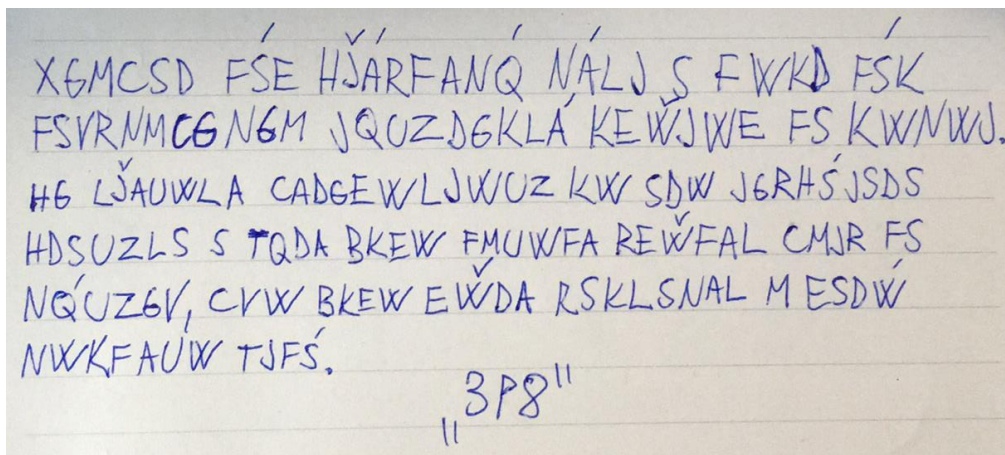 XGMCSD FŚE HJ̌ÁRFANQ́ NÁLJ S FWKD FŚK
FSVRNMCGNGM JQUZDGKLÁ KEW̌JWE FS KWNWJ.
HG LJ̌AUWLA CADGEWLJWUZ KW SDW JGRHŚJSDS
HDSUZLS S TQDA BKEW FMUWFA REW̌FAL CMJR FS
NQ́UZGV, CVW BKEW EW̌DA RSKLSNAL M ESDẂ
NWKFAUW TJFŚ.
„3P8"